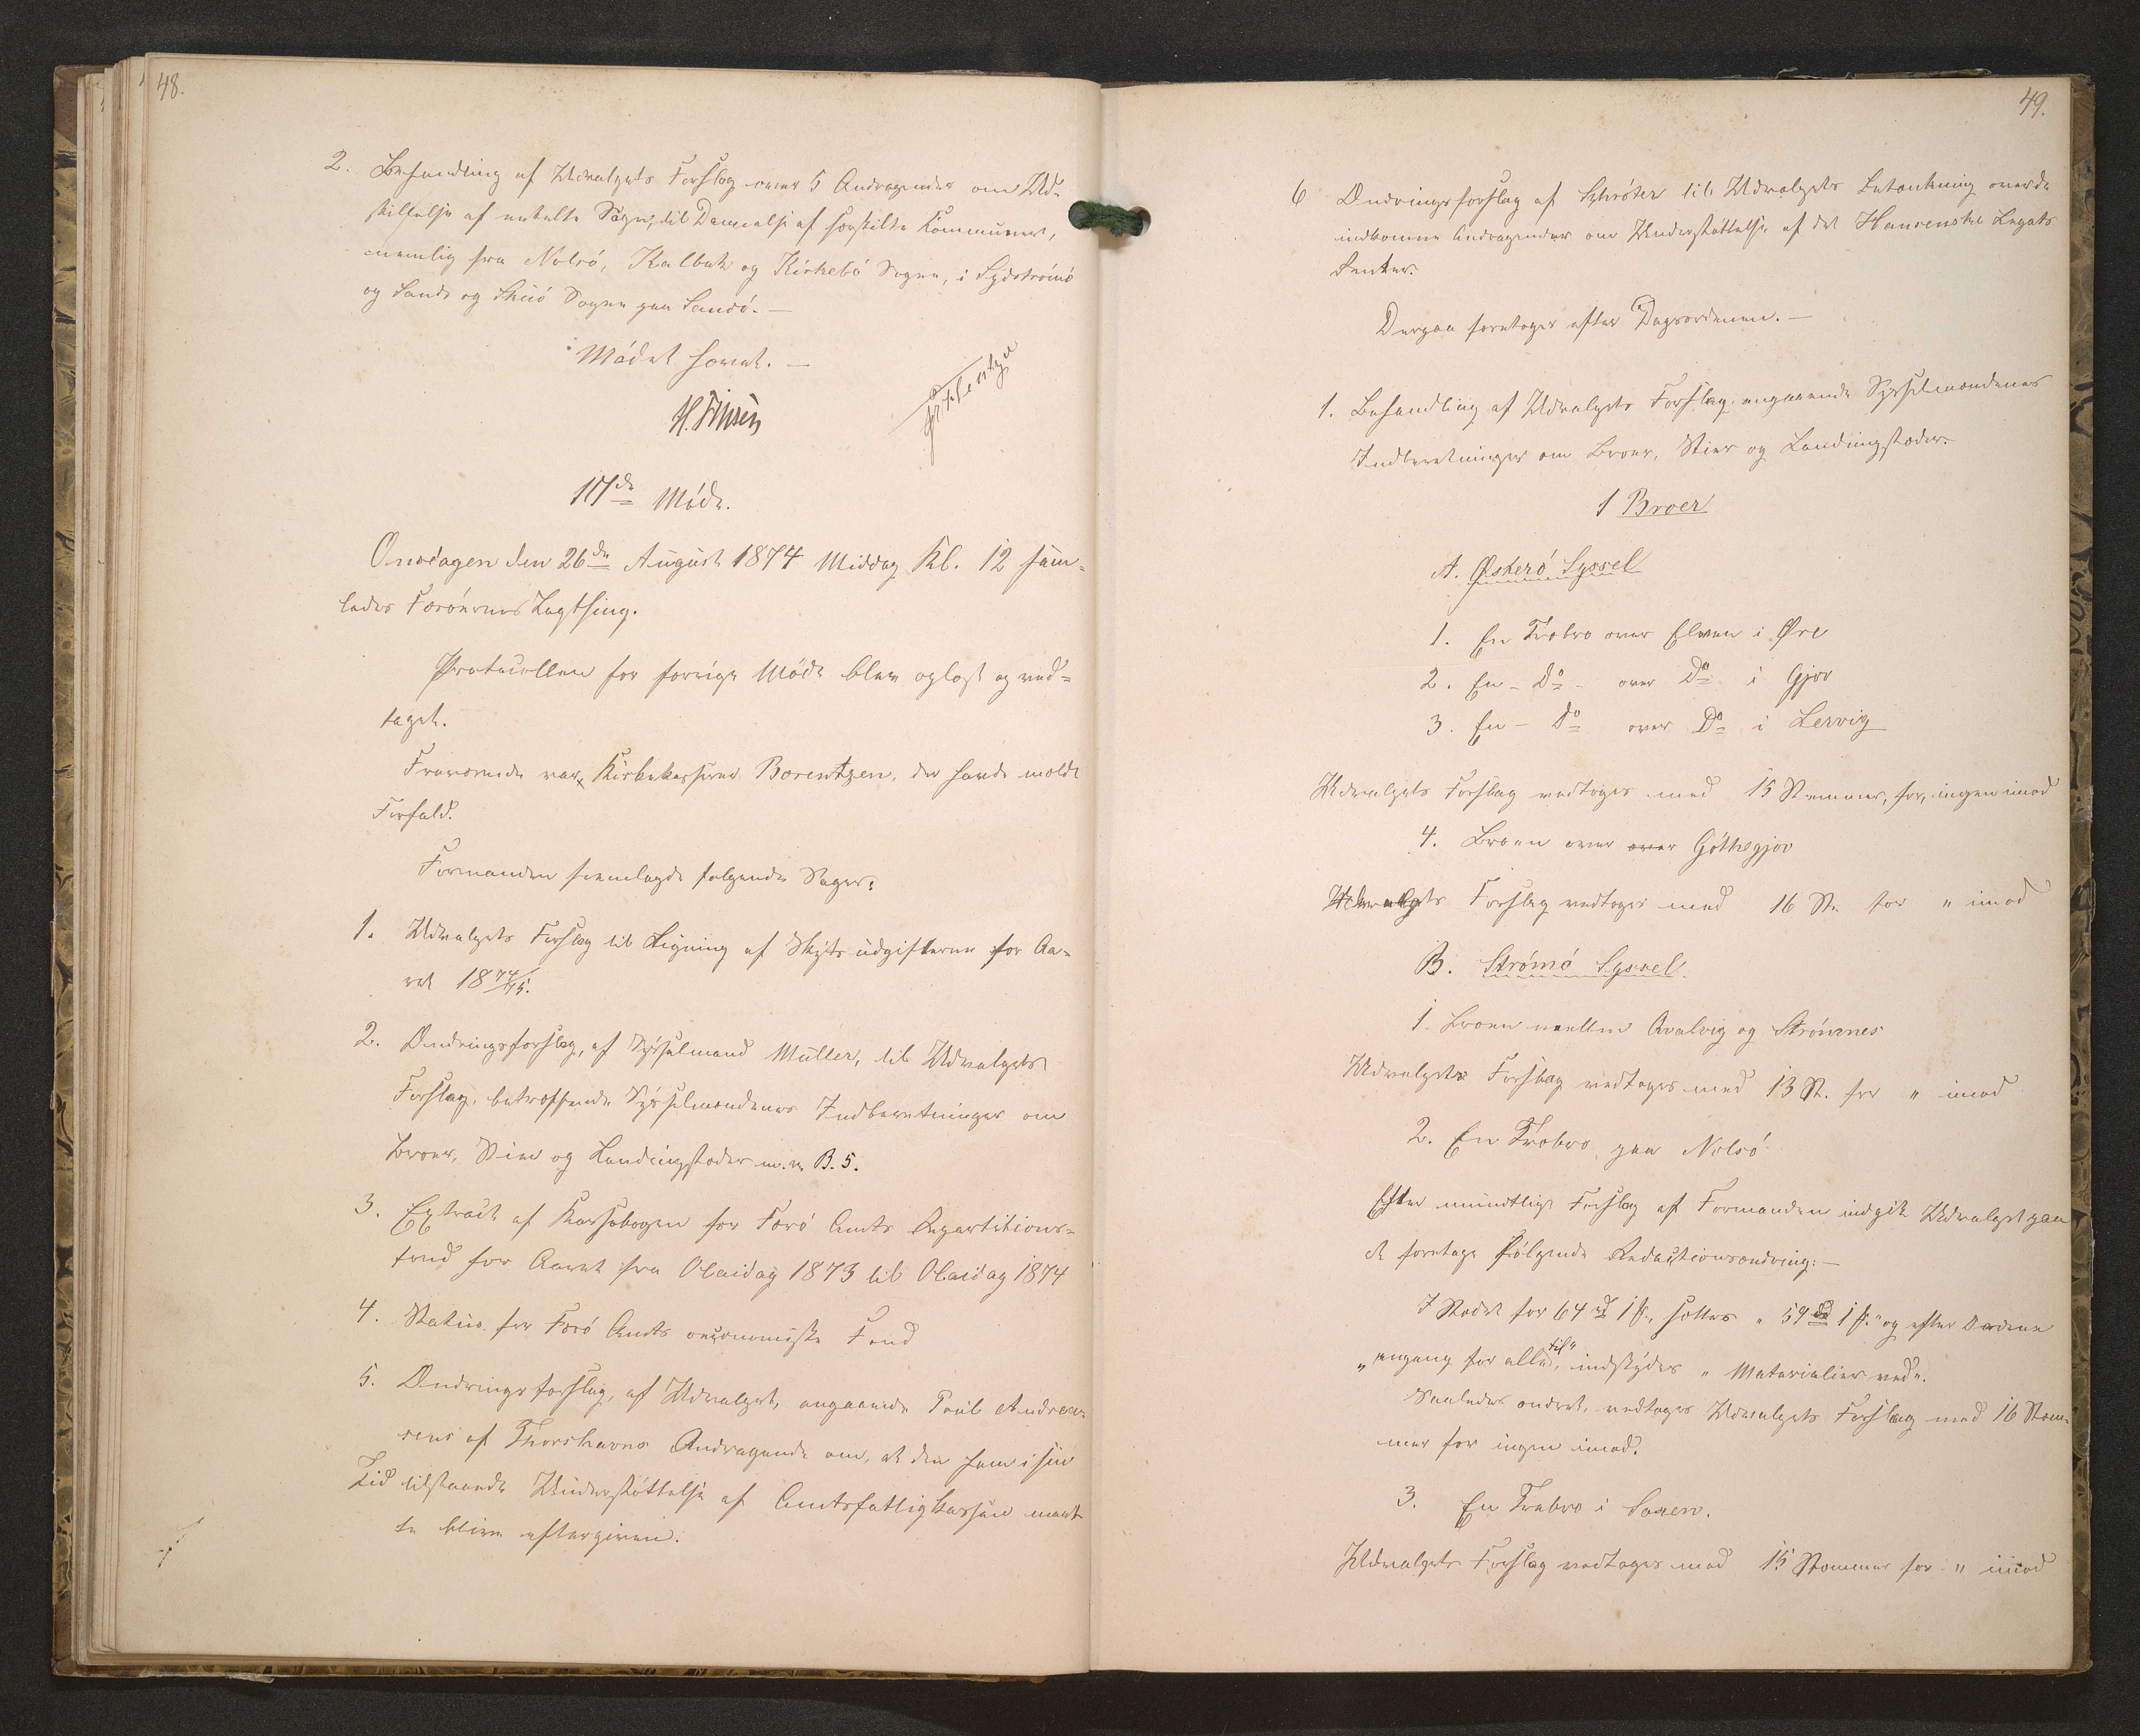 48.
2. Behandling af Udvalgets Forslag over 5 Andragender om Ud-
skillelse af enkelte Sogne, til Dannelse af særskilte Kommuner,
nemlig fra Nolsö, Kalbak og Kirkebö Sogne, i Sydströmö
og Sands og Skuö Sogne paa Sandö. —
Mödet hævet. —
H. Finsen
17de Möde.
Onsdagen den 26de August 1874 Middag Kl. 12 sam-
ledes Færöernes Lagthing.
Protocollen for forrige Möde blev oplæst og ved-
taget.
Fraværende var Kirkekasserer Borentzen, der havde meldt
Forfald.
Formanden fremlagde følgende Sager:
1. Udvalgets Forslag til Ligning af Skydsudgifterne for Aa-
ret 1874/75.
2. Ændringsforslag, af Sysselmand Müller, til Udvalgets
Forslag, betræffende Sysselmændenes Indberetninger om
Broer, Stier og Landingsstæder m. v. B. 5.
3. Extract af Kassebogen for Færö Amts Repartitions-
fond for Aaret fra Olaidag 1873 til Olaidag 1874
4. Status for Færö Amts oeconomiske Fond
5. Ændringsforslag, af Udvalget, angaaende Poul Andrea-
sens af Thorshavns Andragende om, at den ham i sin
Tid tilstaaede Understöttelse af Amtsfattigkassen maat-
te blive eftergiven.
49.
6 Ændringsforslag af Schröter til Udvalgets Betænkning over de
indkomne Andragender om Understöttelse af det Hansenske Legats
Renter.
Derpaa foretoges efter Dagsordenen. —
1. Behandling af Udvalgets Forslag angaaende Sysselmændenes
Indberetninger om Broer, Stier og Landingsstæder.
1 Broer
A. Østerö Syssel
1. En Træbro over Elven i Øre
2. En - Do - over Do i Gjov
3. En - Do over Do i Lervig
Udvalgets Forslag vedtoges med 15 Stemmer, for, ingen imod
4. Broen over over Göthegjov
Udvalgets Forslag vedtoges med 16 St. for " imod
B. Strömö Syssel.
1. Broen mellem Qvalvig og Strömnes
Udvalgets Forslag vedtoges med 13 St. for " imod
2. En Træbro paa Nolsö
Efter mundtligt Forslag af Formanden indgik Udvalget paa
at foretage følgende Redactionsændring: —
I Stedet for 64 rd 1 ß., sættes " 59 rd 1 ß." og efter Ordene
" engang for alle, til" indskydes " Materialier ved".
Saaledes ændret, vedtoges Udvalgets Forslag med 16 Stem-
mer for ingen imod.
3. En Træbro i Saxen.
Udvalgets Forslag vedtoges med 15 Stemmer for " imod